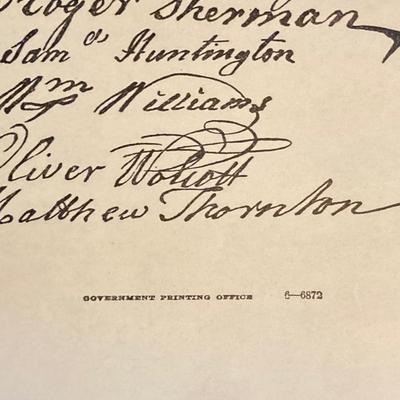 Roger Sherman
Sam el Huntington
Wm Williams
Oliver Wolcott
Matthew Thornton
GOVERNMENT PRINTING OFFICE 6—6872